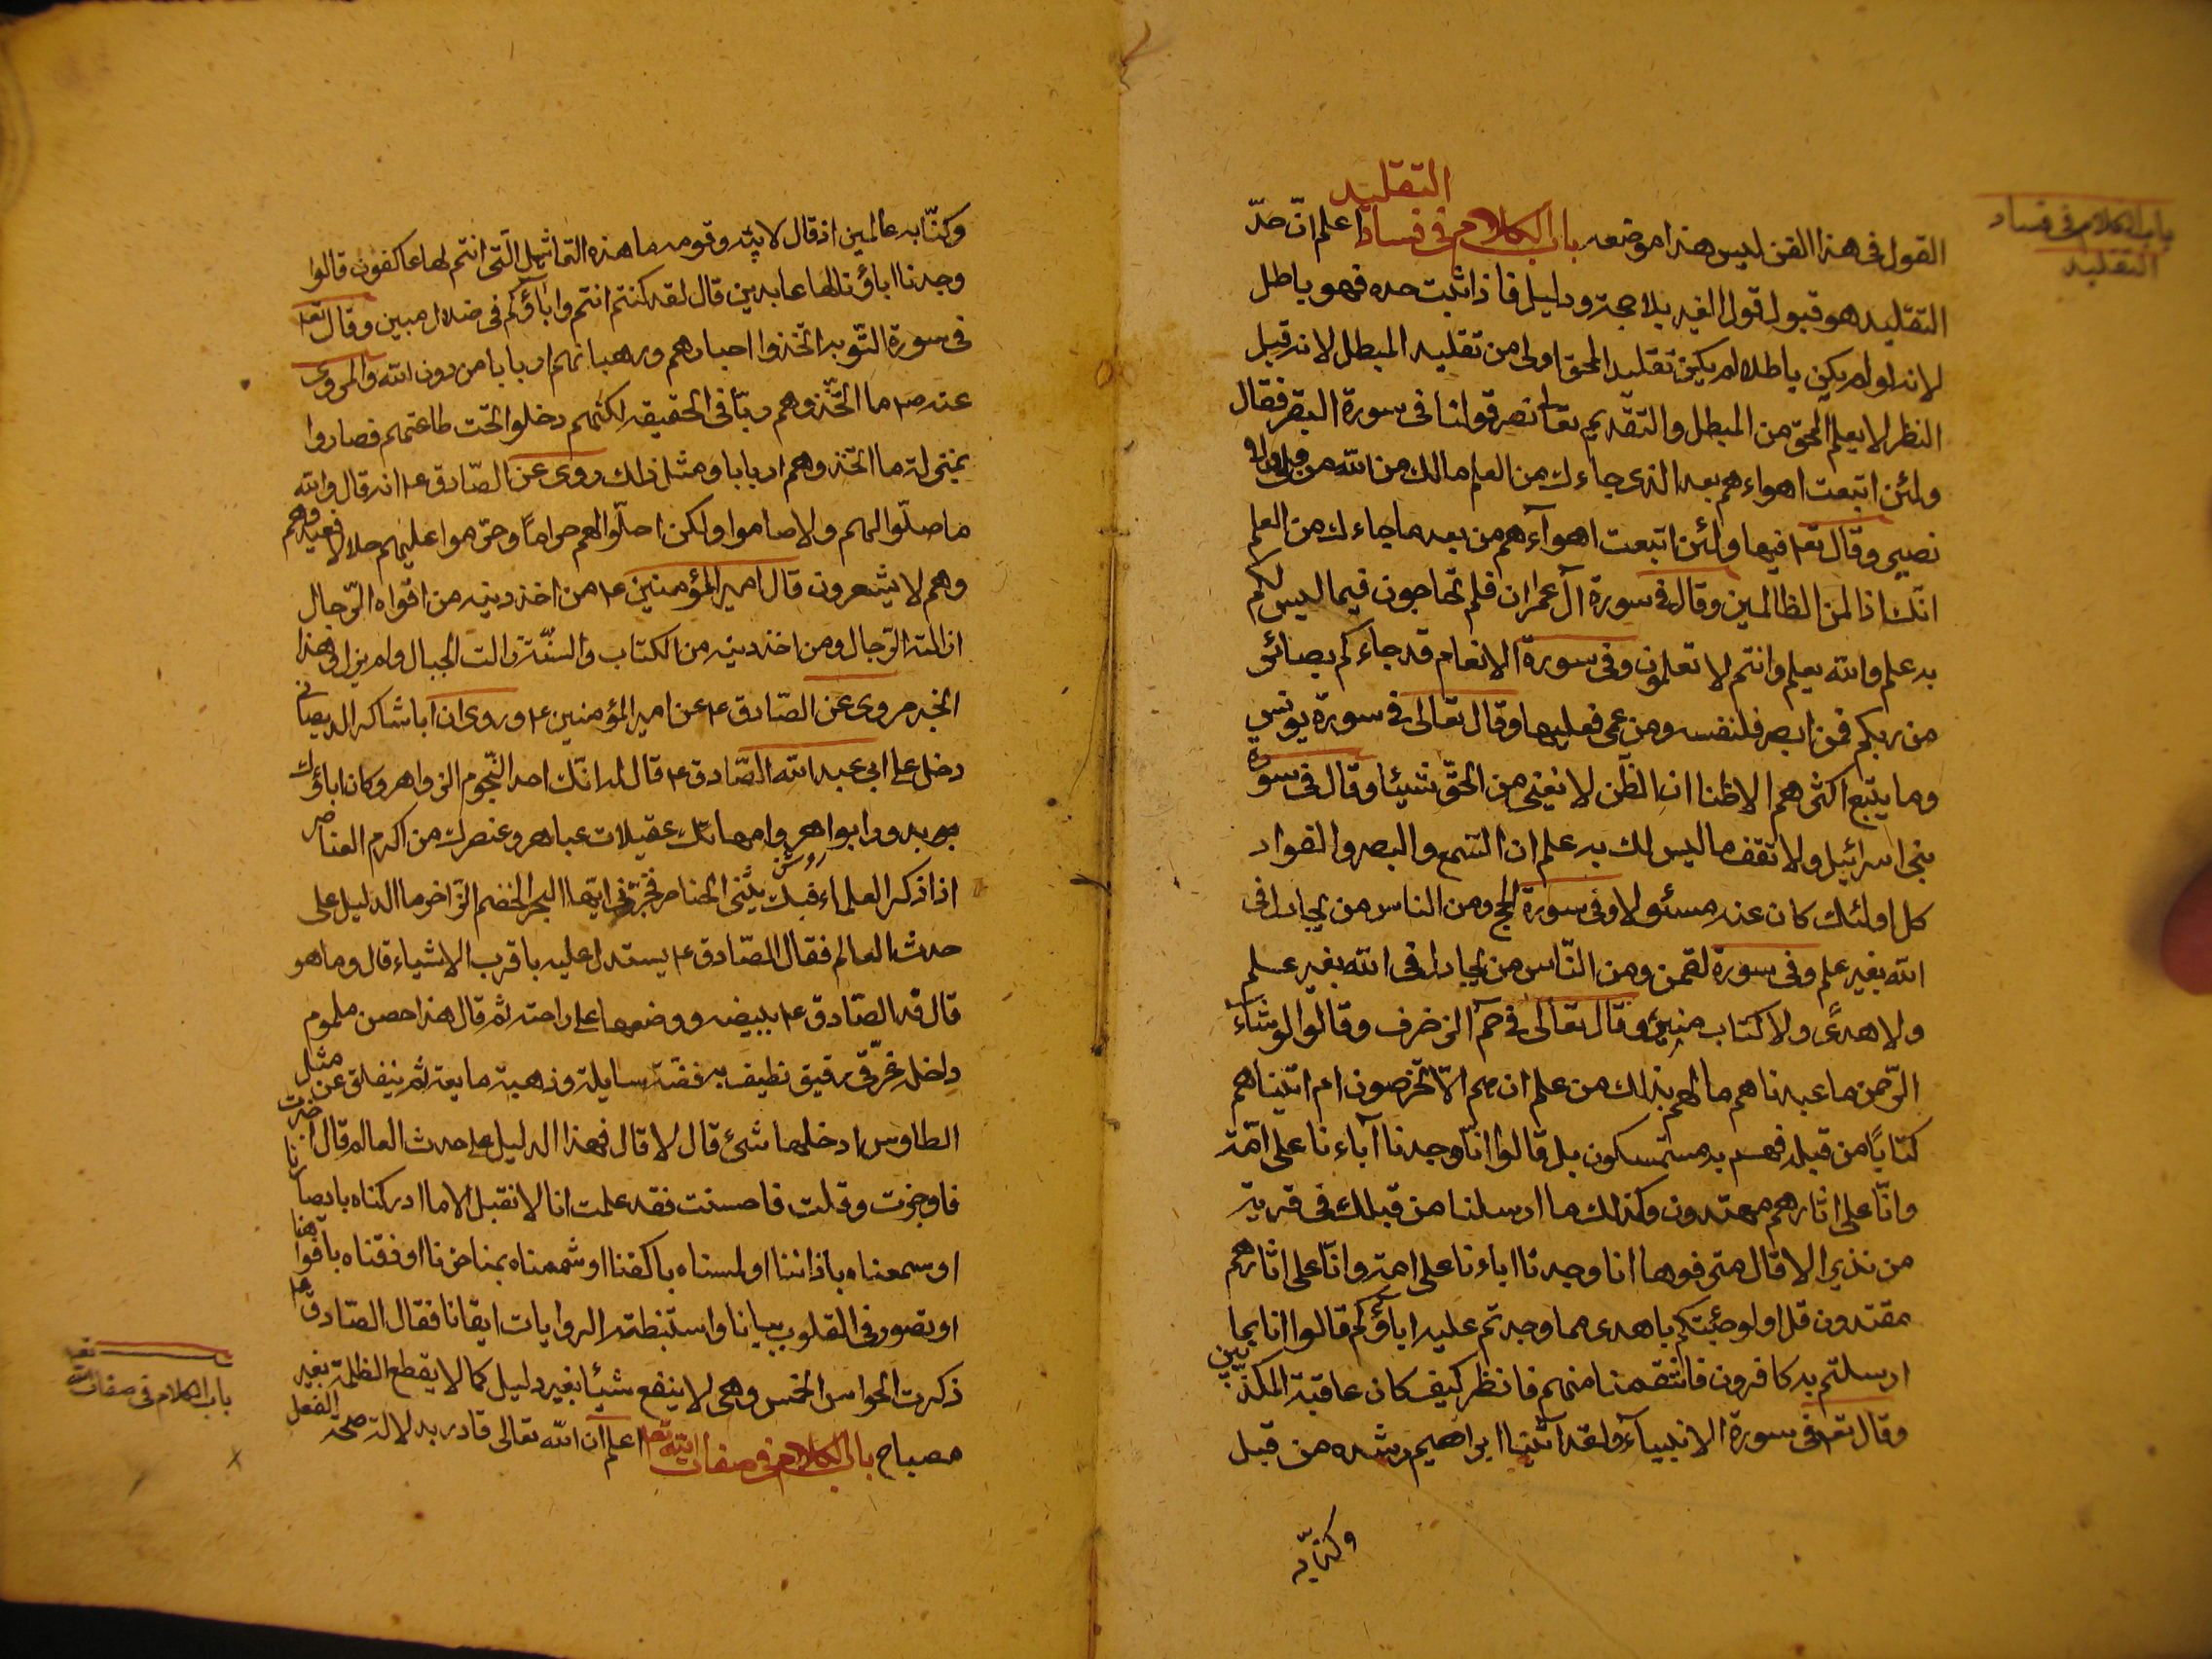 باب الكلام فى فساد
التقليد
القول فى هذا الفن ليس هذا موضعه باب الكلام فى فساد التقليد اعلم انّ حدّ
التقليد هو قبول قول الغير بلا حجة ودليل فاذا ثبت حده فهو باطل
لانه لو لم يكن باطلا لم يكن تقليد المحق اولى من تقليد المبطل لانه قبل
النظر لا يعلم المحق من المبطل والتقديم تعالى نصر قولنا فى سورة البقر فقال
ولئن اتبعت اهواءهم بعد الذى جاءك من العلم مالك من الله من ولى ولا
نصير وقال تع فيها ولئن اتبعت اهوآءهم من بعد ما جاءك من العلم
انّك اذا لمن الظالمين وقال فى سورة آل عمران فلم تحاجون فيما ليس لكم
به علم والله يعلم وانتم لا تعلمون وفى سورة الانعام قد جاءكم بصائر
من ربكم فمن ابصر فلنفسه ومن عمى فعليها وقال تعالى فى سورة يونس
وما يتبع اكثرهم الا ظنا ان الظّن لا يغنى من الحقّ شيئا وقال فى سورة
بنى اسرائيل ولا تقف ما ليس لك به علم ان السّمع والبصر والفواد
كل اولئك كان عنه مسئولا وفى سورة الحج ومن الناس من يجادل فى
الله بغير علم وفى سورة لقمن ومن النّاس من يجادل فى الله بغير علم
ولا هدىً ولا كتاب منير وقال تعالى فى حمٓ الزخرف وقالوا لو شآء
الرّحمن ما عبدناهم ما لهم بذلك من علم ان هم الاّ يخرصون ام اتيناهم
كتابًا من قبله فهم به مستمسكون بل قالوا انّا وجدنا آباءنا على امّة
وانّا على اثارهم مهتدون وكذلك ما ارسلنا من قبلك فى قرية
من نذير الا قال مترفوها انا وجدنا اباءنا على امة وانّا على اثارهم
مقتدون قل اولو جئتكم باهدى مما وجدتم عليه اباؤكم قالوا انا بما
ارسلتم به كافرون فانتقمنا منهم فانظر كيف كان عاقبة المكذّبين
وقال تع فى سورة الانبيآء ولقد اتينا ابراهيم رشده من قبل
وكنّا به
وكنّا به عالمين اذ قال لابيه وقومه ما هذه التماثيل الّتى انتم لها عاكفون قالوا
وجدنا اباؤنا لها عابدين قال لقد كنتم انتم واباؤكم فى ضلال مبين وقال تع
فى سورة التّوبه اتخذوا احبارهم ورهبانهم اربابا من دون الله والمروى
عنه ما اتّخذوهم ربّا فى الحقيقه لكنّهم دخلوا تحت طاعتهم فصاروا
بمنزلة ما اتخذوهم اربابا ومثل ذلك روى عن الصّادق ع انه قال والله
ما صلّوا لهم ولا صاموا ولكن احلّوا لهم حراماً وحرّموا عليهم حلالا فعبدوهم
وهم لا يشعرون قال امير المؤمنين ع من اخذ دينه من افواه الرّجال
ازالته الرّجال ومن اخذ دينه من الكتاب والسّنّة زالت الجبال ولم يزل وهذا
الخبر مروى عن الصّادق ع عن امير المؤمنين ع وروى ان ابا شاكر الديصانى
دخل على ابى عبد الله الصّادق ع قال له انّك احد النّجوم الزواهر وكان اباؤك
بدورا بواهر وامهاتك عقيلات عباهر وعنصرك من اكرم العناصر
اذا ذكر العلماء فبك يثنى الخناصر فخبّرنى ايّها البحر الخضم الزّاخر ما الدليل على
حدث العالم فقال الصّادق ع يستدل عليه باقرب الاشياء قال وما هو
قال فد الصّادق ع ببيضه ووضعها على راحته ثم قال هذا حصن ملموم
داخله غرقئ رقيق نطيف به فضّة سايلة وذهبة مايعة ثم ينفلق عن مثل
الطاوس ادخلها شئ قال لا قال فهذا الدليل على حدث العالم قال اخبرت
فاوجزت وقلت فاحسنت فقد علمت انا لا نقبل الا ما ادركناه بابصارنا
او سمعناه باذاننا او لمسناه باكفنا او شممناه بمناخرنا او ذقناه بافواهنا
او تصور فى القلوب بيانا واستنبطته الروايات ايقانا فقال الصّادق ع
ذكرت الحواس الخمس وهى لا ينفع شيئا بغير دليل كما لا يقطع الظلمة بغير
مصباح باب الكلام فى صفات الله تع اعلم ان الله تعالى قادر بدلالة صحّة الفعل
باب الكلام فى صفات الله تع